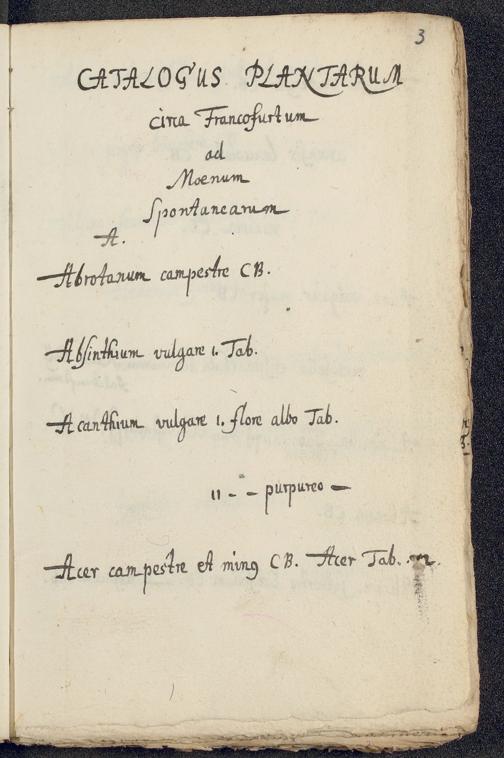 3
CATALOGUS PLANTARUM
circa Francofurtum
ad
Moenum
Spontanearum
A.
Abrotanum campestre CB.
Absinthium vulgare 1. Tab.
Acanthium vulgare 1. flore albo Tab.
11 - - purpureo -
Acer campestre et minꝰ CB. Acer Tab.